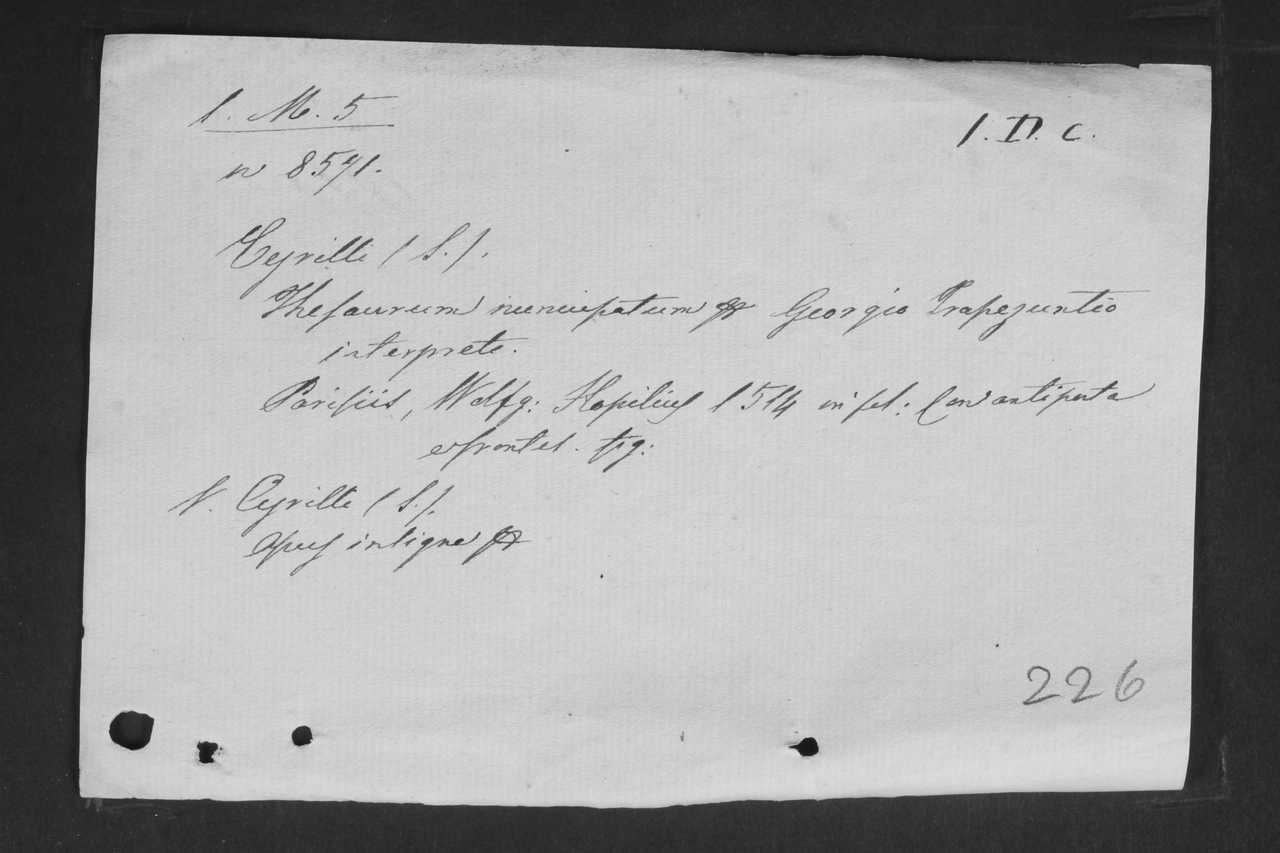 1. M. 5
1. D. c.
n 8591.
Cyrilli (S.).
Thesaurum nuncupatum & Georgio Trapezuntio
interprete.
Parisiis, Wolfg: Hopilius 1514 in fol: Con antiporta
e frontes. fig:
V. Cyrilli (S.).
Opus insigne &
226